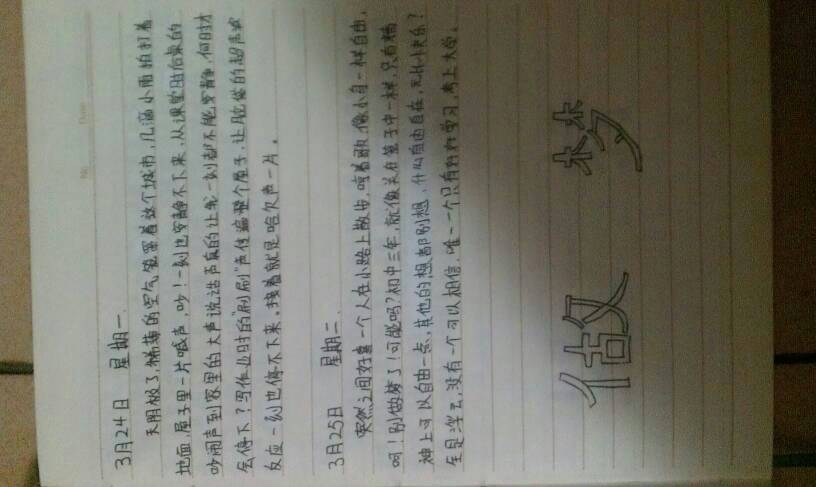 3月24日 星期一
天阴极了,稀薄的空气笼罩着这个城市,几滴小雨拍打着
地面,屋子里一片喊声,吵!一刻也安静不下来,从课堂时后桌的
吵闹声到家里的大声说话声真的让我一刻都不能安静,何时才
会停下?写作业时的"刷刷"声传遍整个屋子,让月饺的超声波
反应一刻也停不下来,接着就是哈欠声一片。
3月25日 星期二
突然之间好喜一个人在小路上散步,哼着歌,像小鸟一样自由,
呵!别做梦了!可能吗?初中三年,就像关在笼子中一样,只有精
神上可以自由一点,其他的想都别想,什么自由自在,无忧快乐?
全是浮云,没有一个可以相信,唯一一个只有好好学习,考上大学。
做 梦